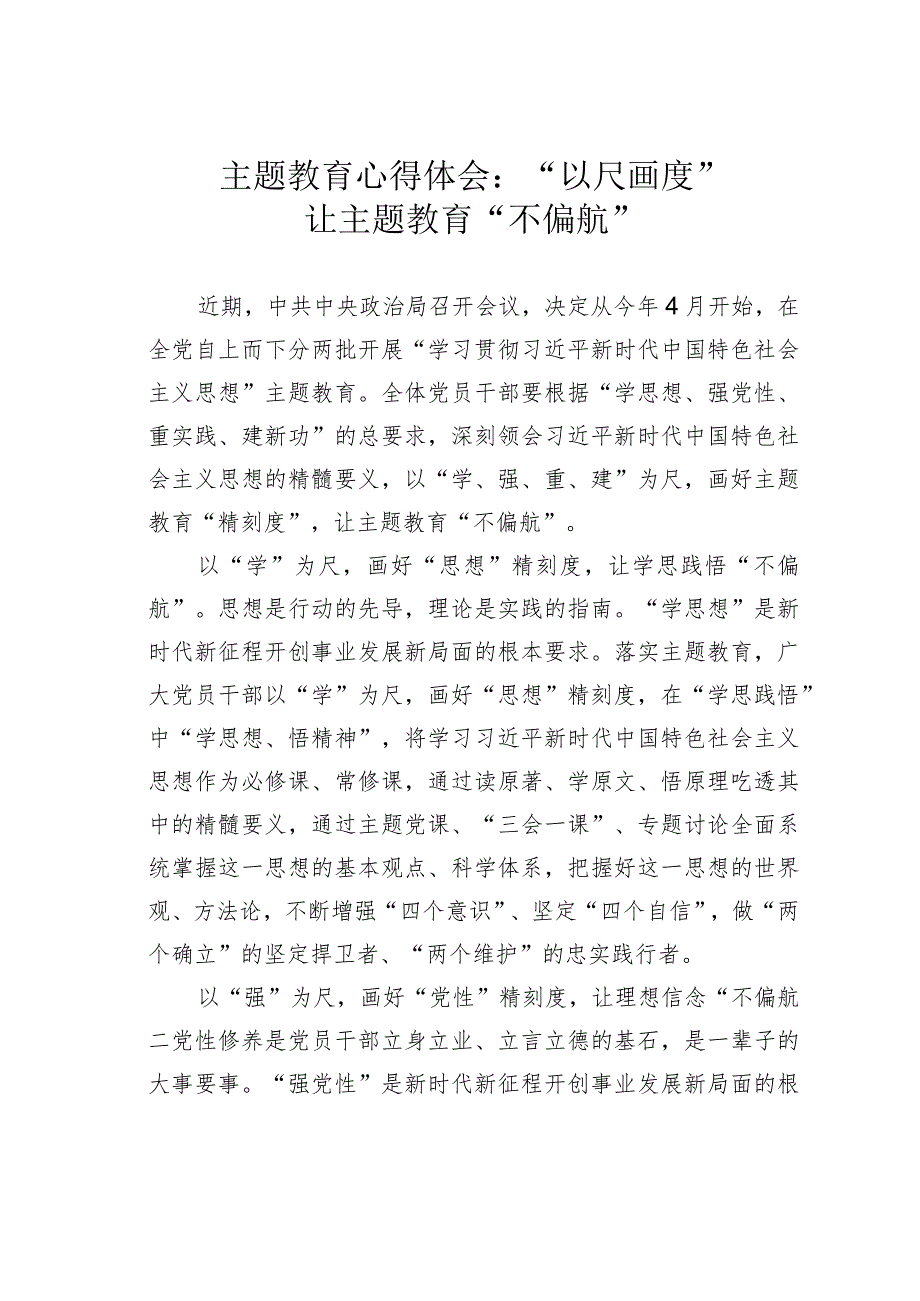 主题教育心得体会：“以尺画度”
让主题教育“不偏航”
近期，中共中央政治局召开会议，决定从今年4月开始，在
全党自上而下分两批开展“学习贯彻习近平新时代中国特色社会
主义思想”主题教育。全体党员干部要根据“学思想、强党性、
重实践、建新功”的总要求，深刻领会习近平新时代中国特色社
会主义思想的精髓要义，以“学、强、重、建”为尺，画好主题
教育“精刻度”，让主题教育“不偏航”。
以“学”为尺，画好“思想”精刻度，让学思践悟“不偏
航”。思想是行动的先导，理论是实践的指南。“学思想”是新
时代新征程开创事业发展新局面的根本要求。落实主题教育，广
大党员干部以“学”为尺，画好“思想”精刻度，在“学思践悟”
中“学思想、悟精神”，将学习习近平新时代中国特色社会主义
思想作为必修课、常修课，通过读原著、学原文、悟原理吃透其
中的精髓要义，通过主题党课、“三会一课”、专题讨论全面系
统掌握这一思想的基本观点、科学体系，把握好这一思想的世界
观、方法论，不断增强“四个意识”、坚定“四个自信”，做“两
个确立”的坚定捍卫者、“两个维护”的忠实践行者。
以“强”为尺，画好“党性”精刻度，让理想信念“不偏航
二党性修养是党员干部立身立业、立言立德的基石，是一辈子的
大事要事。“强党性”是新时代新征程开创事业发展新局面的根